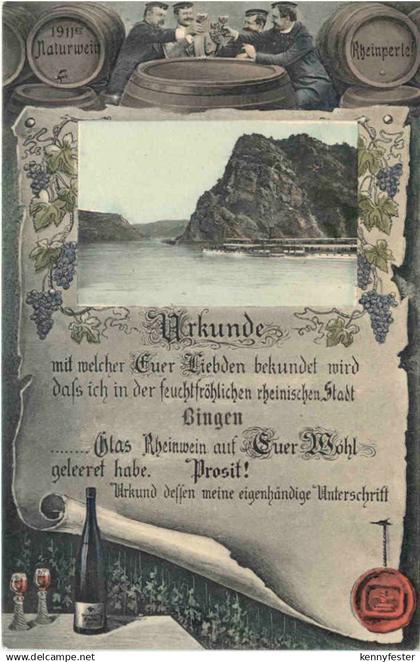 1911er
Naturwein
Rheinperle!
Urkunde
mit welcher Euer Liebden bekundet wird
dass ich in der feuchtfröhlichen rheinischen Stadt
Bingen
........ Glas Rheinwein auf Euer Wohl
geleeret habe. Prosit!
Urkund dessen meine eigenhändige Unterschrift
www.delcampe.net
kennyfester